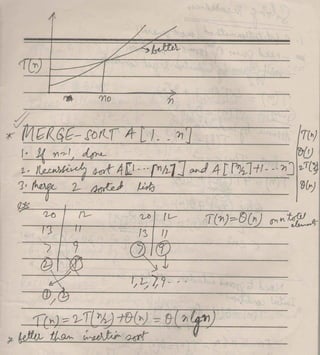 better
T(n)
n0
n
* MERGE-SORT A[1..n]
T(n)
1. If n=1, done
Θ(1)
2. Recursively sort A[1...⌈n/2⌉] and A[⌈n/2⌉+1...n]
2T(n/2)
3. Merge 2 sorted lists
Θ(n)
20 | 12
13 | 11
7 | 9
2 | 1
1, 2
20 | 12
13 | 11
7 | 9
1, 2, 7, 9...
T(n)=Θ(n) on n total
element
T(n)=2T(n/2)+Θ(n)=Θ(n lg n)
* better than insertion sort